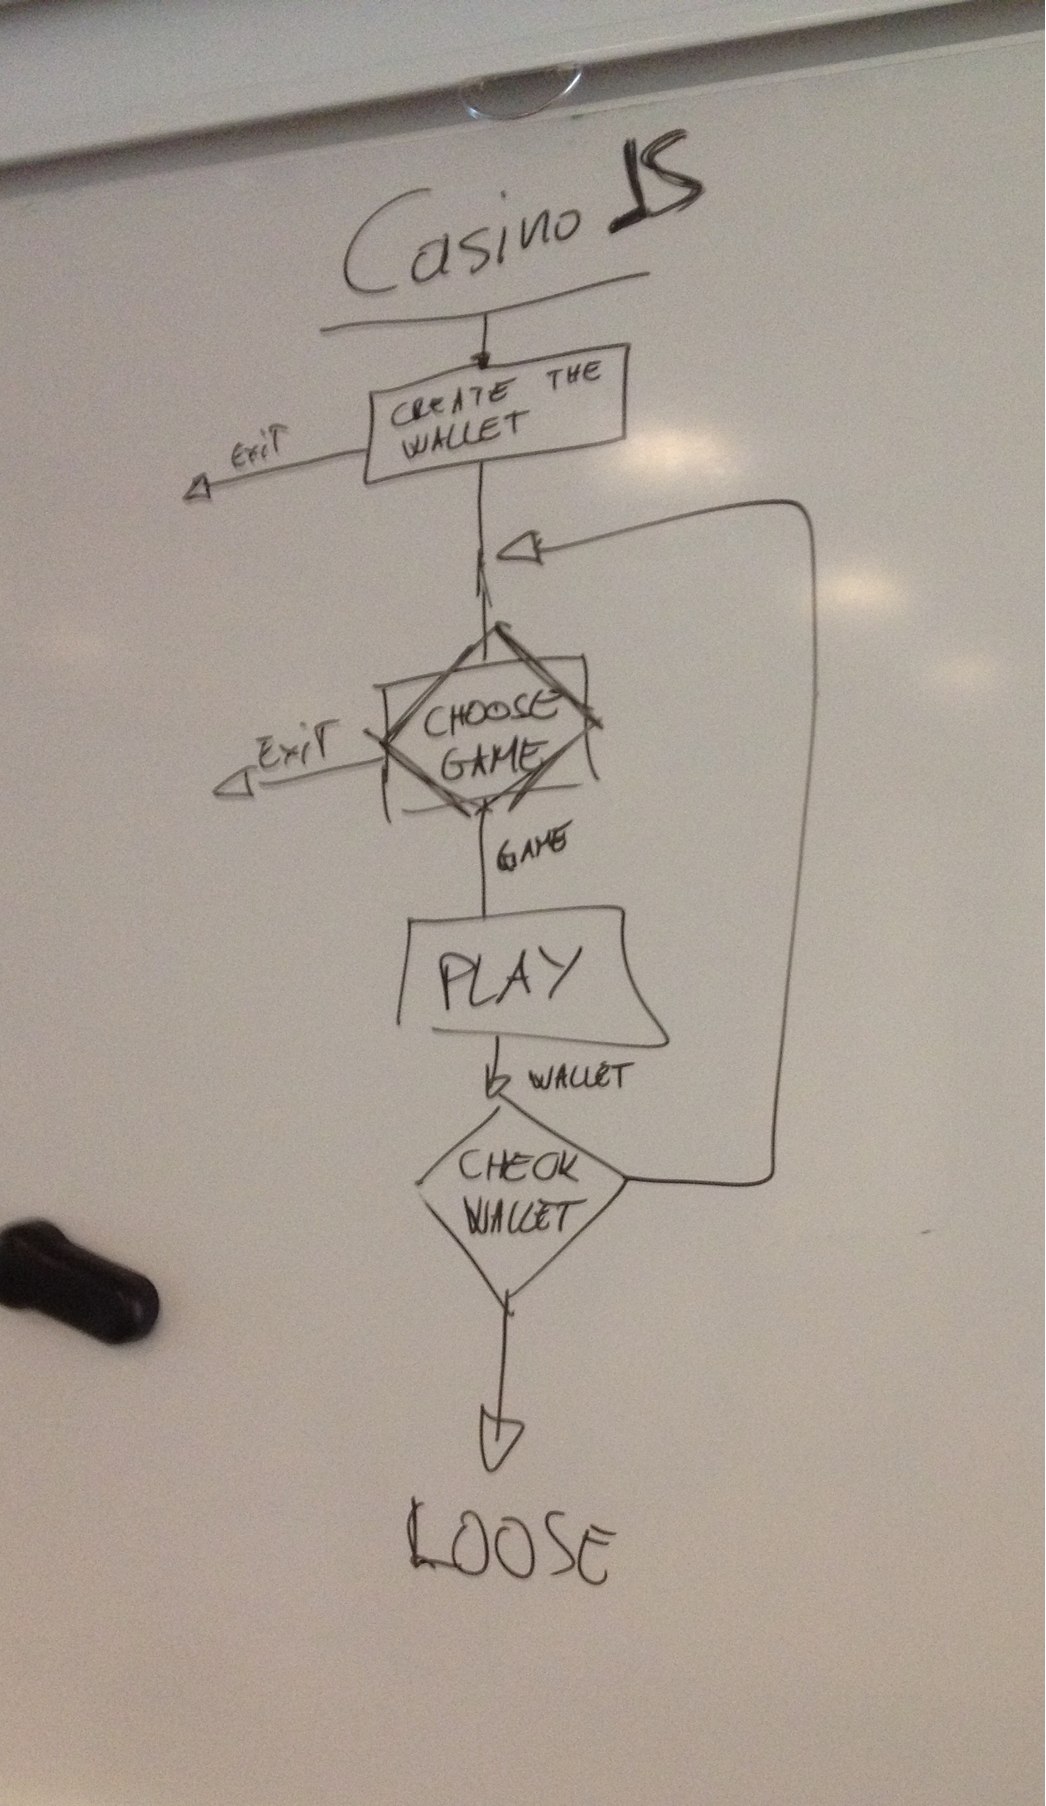 Casino JS
CREATE THE
WALLET
Exit
CHOOSE
GAME
Exit
GAME
PLAY
WALLET
CHECK
WALLET
LOOSE